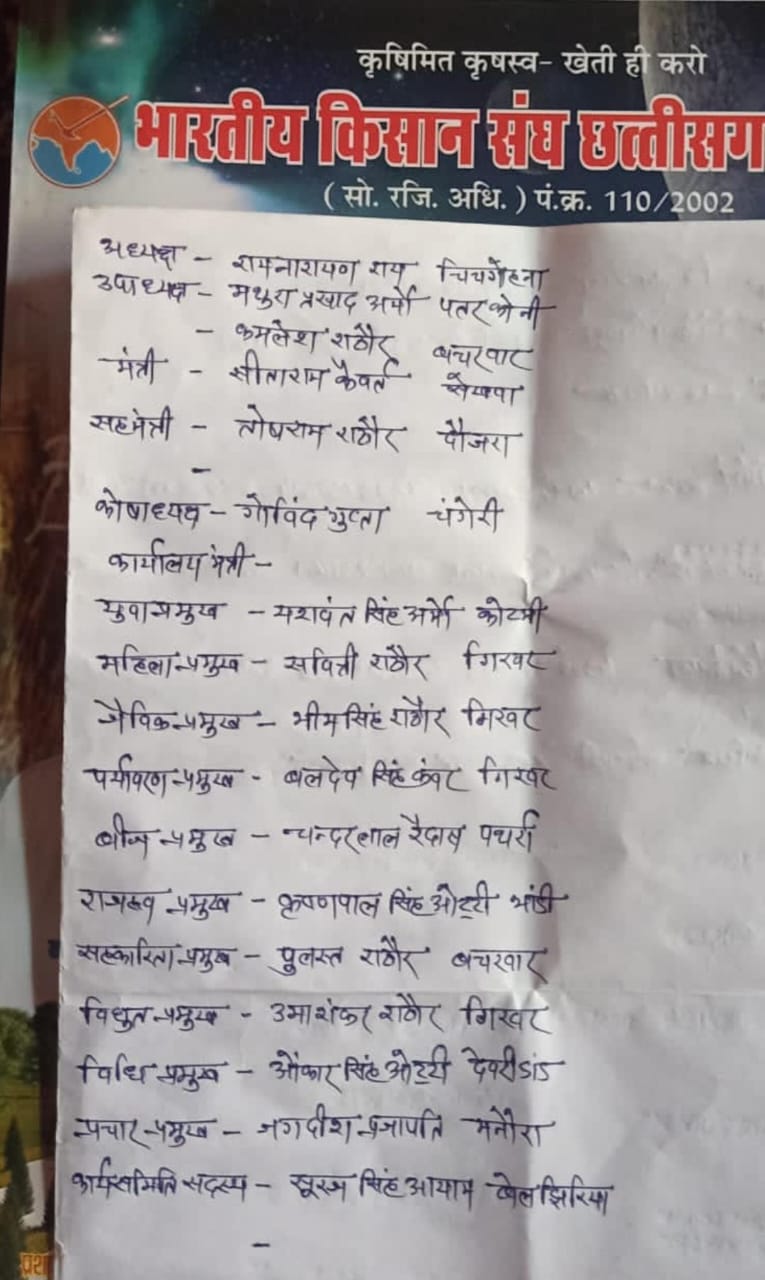 कृषिमित कृषस्व- खेती ही करो
भारतीय किसान संघ छत्तीसग
( सो. रजि. अधि. ) पं.क्र. 110/2002
अध्यक्ष - रामनारायण राय चिचगोहना
उपाध्यक्ष - मथुरा प्रसाद अर्मो पतरकोनी
- कमलेश राठौर बचरवार
मंत्री - सीताराम कैवर्त
सहमंत्री - तोषराम राठौर दौजरा
-
कोषाध्यक्ष - गोविंद गुप्ता चंगेरी
कार्यालय मंत्री -
युवा प्रमुख - यशवंत सिंह अर्मो कोटमी
महिला प्रमुख - सवित्री राठौर गिरवर
जैविक प्रमुख - भीमसिंह राठौर गिरवर
पर्यावरण प्रमुख - बलदेव सिंह कंवर गिरवर
बीज प्रमुख - चन्दरलाल रैदास पथर्रा
राजस्व प्रमुख - कृष्णपाल सिंह ओट्टी भांडी
सहकारिता प्रमुख - पुलस्त राठौर बचरवार
विधुत प्रमुख - उमाशंकर राठौर गिरवर
विधि प्रमुख - ओंकार सिंह ओट्टी देवरीडांड
प्रचार प्रमुख - जगदीश प्रजापति मनौरा
कार्यसमिति सदस्य - सूरज सिंह आयाम बेलझिरिया
-